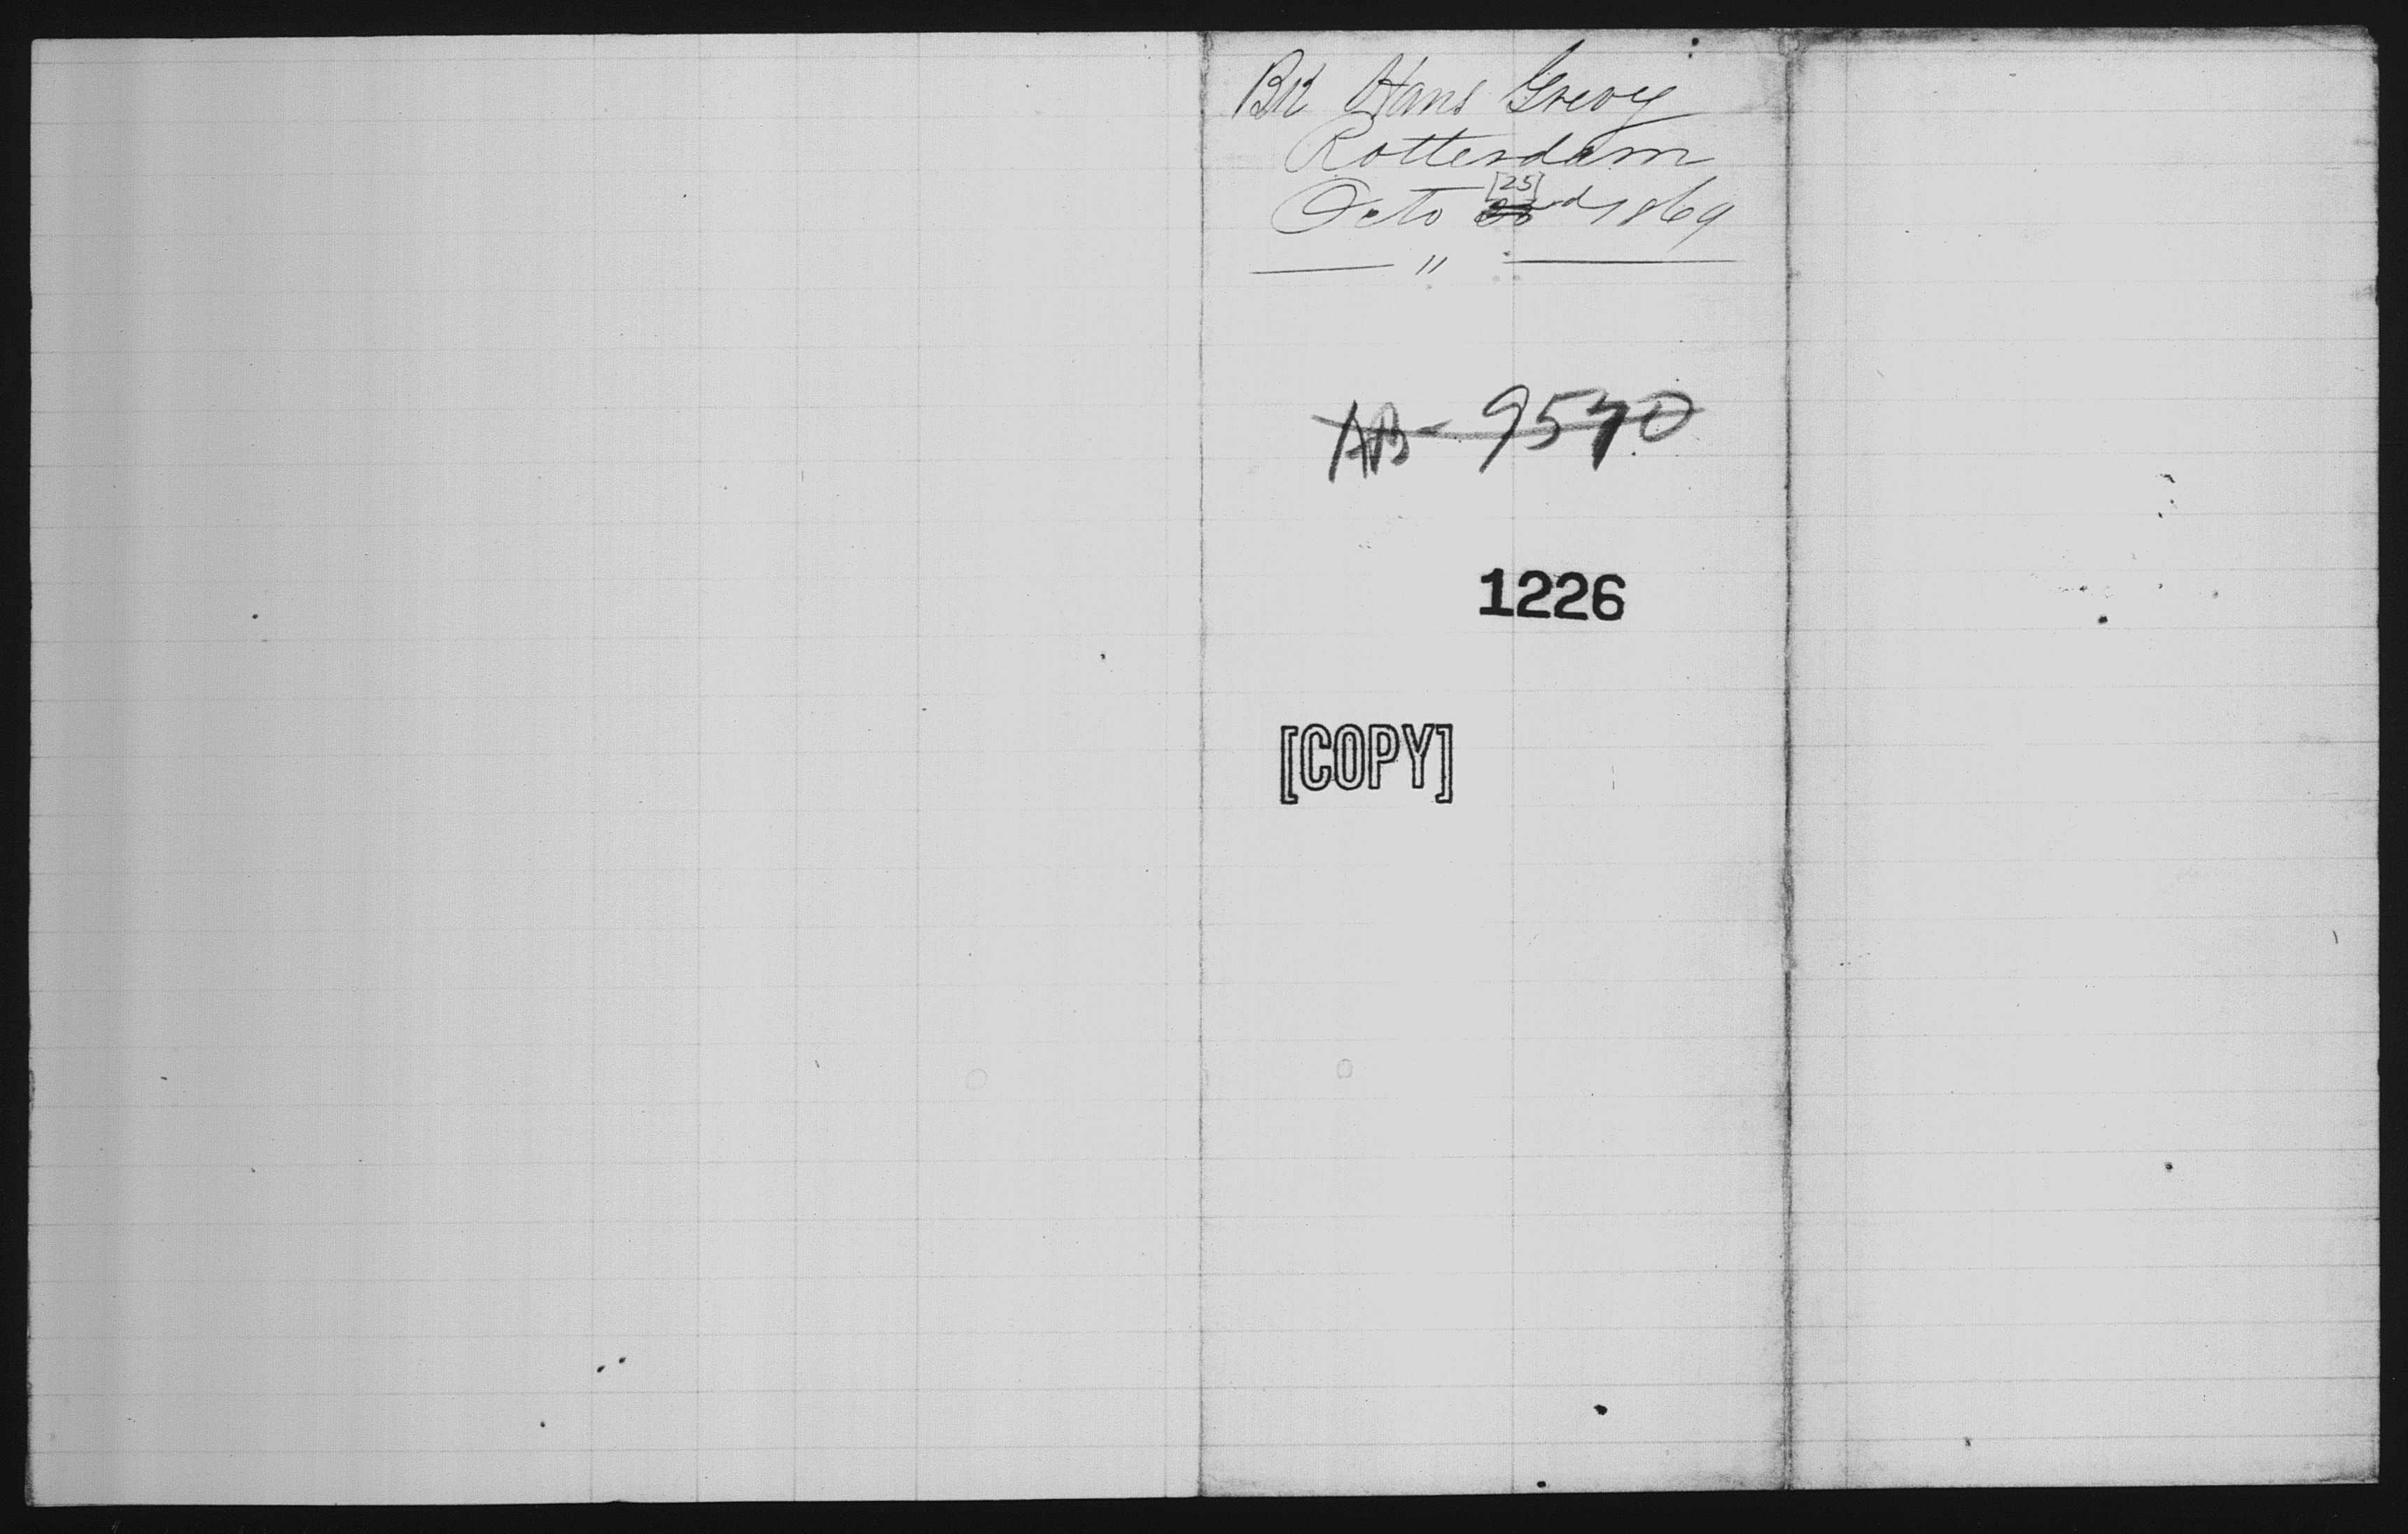 Bk Hans Grevy
Rotterdam
Octo [25] 23rd 1869
"
AB- 9570
1226
[COPY]